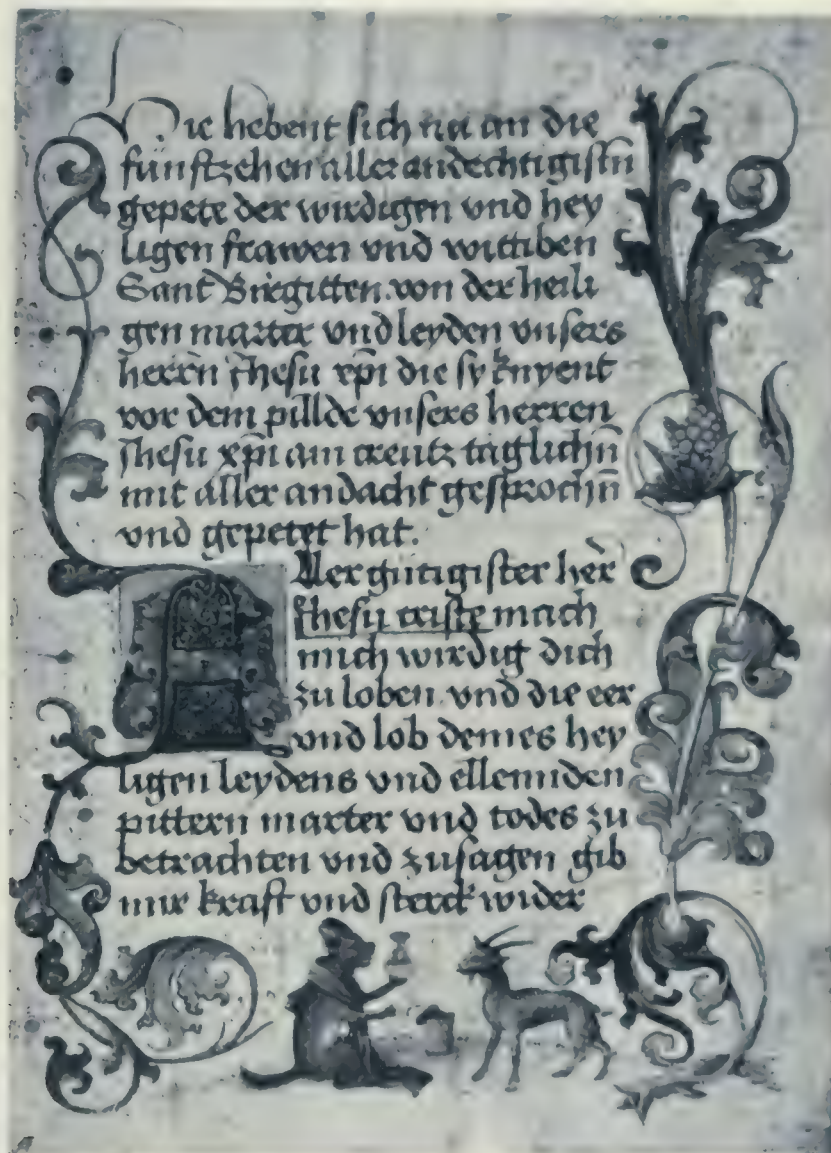 Hie hebent sich na an die
fünftzehen aller andechtigistn̄
gepete der wirdigen vnd hey
ligen frawen vnd wittiben
Sant Birgitten. von der heili
gen marter vnd leyden vnsers
herrn Jhesu xp̄i die sy knyent
vor dem pillde vnsers herren
Jhesu xp̄i am creutz täglichn̄
mit aller andacht gesprochn̄
vnd gepetet hat.
Aller gütigister her
Jhesu criste mach
mich wirdig dich
zu loben vnd die eer
vnd lob deines hey
ligen leydens vnd ellenniden
pittern marter vnd todes zu
betrachten vnd zusagen gib
mir kraft vnd sterck wider